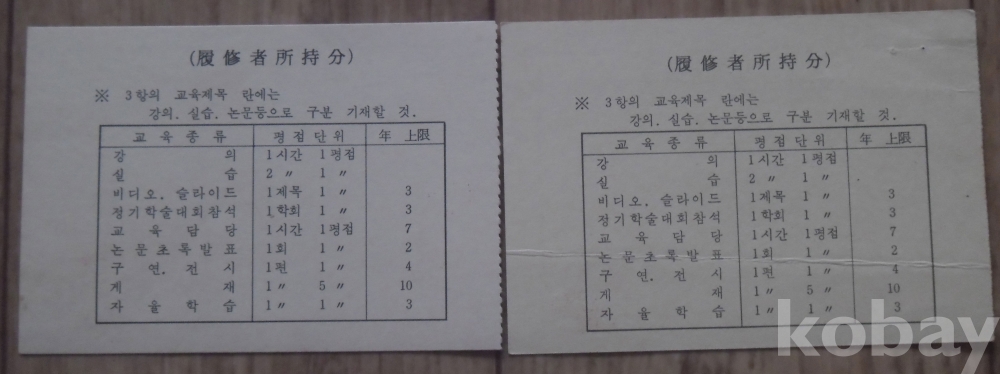 (履修者所持分)
※ 3항의 교육제목 란에는
강의. 실습. 논문등으로 구분 기재할 것.
교육종류 평점단위 年上限
강의 1시간 1평점
실습 2 〃 1 〃
비디오, 슬라이드 1제목 1 〃 3
정기학술대회참석 1학회 1 〃 3
교육담당 1시간 1평점 7
논문초록발표 1회 1 〃 2
구연.전시 1편 1 〃 4
게재 1 〃 5 〃 10
자율학습 1 〃 1 〃 3
(履修者所持分)
※ 3항의 교육제목 란에는
강의. 실습. 논문등으로 구분 기재할 것.
교육종류 평점단위 年上限
강의 1시간 1평점
실습 2 〃 1 〃
비디오, 슬라이드 1제목 1 〃 3
정기학술대회참석 1학회 1 〃 3
교육담당 1시간 1평점 7
논문초록발표 1회 1 〃 2
구연.전시 1편 1 〃 4
게재 1 〃 5 〃 10
자율학습 1 〃 1 〃 3
kobay